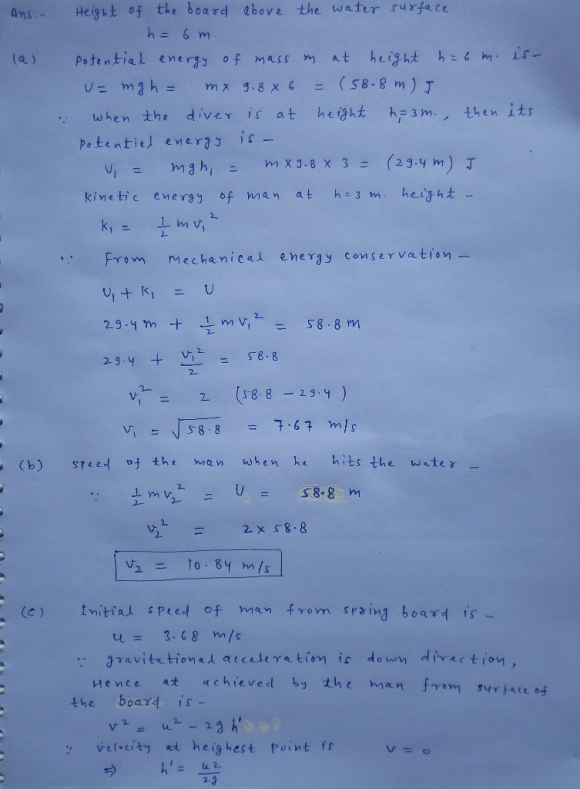 Ans:- Height of the board above the water surface
h = 6 m.
(a) Potential energy of mass m at height h = 6 m. is -
U = mgh = m x 9.8 x 6 = (58.8 m) J
∵ when the diver is at height h₁ = 3m., then its
potential energy is -
U₁ = mgh₁ = m x 9.8 x 3 = (29.4 m) J
kinetic energy of man at h = 3 m. height -
K₁ = 1/2 m v₁²
∵ From mechanical energy conservation -
U₁ + K₁ = U
29.4 m + 1/2 m v₁² = 58.8 m
29.4 + v₁²/2 = 58.8
v₁² = 2 (58.8 - 29.4)
v₁ = √58.8 = 7.67 m/s
(b) speed of the man when he hits the water -
∵ 1/2 m v₂² = U = 58.8 m
v₂² = 2 x 58.8
v₂ = 10.84 m/s
(c) Initial speed of man from spring board is -
u = 3.68 m/s
∵ gravitational acceleration is down direction,
Hence at achieved by the man from surface of
the board is -
v² = u² - 2gh'
∵ velocity at heighest point is v = 0
⇒ h' = u2/2g